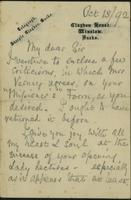 Telegraph,
Steeple Claydon, Bucks.
Claydon House,
Winslow,
Bucks.
Oct 18/92
My dear Sir
I venture to enclose a few
criticisms, in which Mrs
Verney agrees, on your
"Memoir" & Form, as you
desired. I ought to have
returned it before
I give you joy with all
my heart & soul at the
success of your opening
Lady Lectures - especially
as it appears that we can